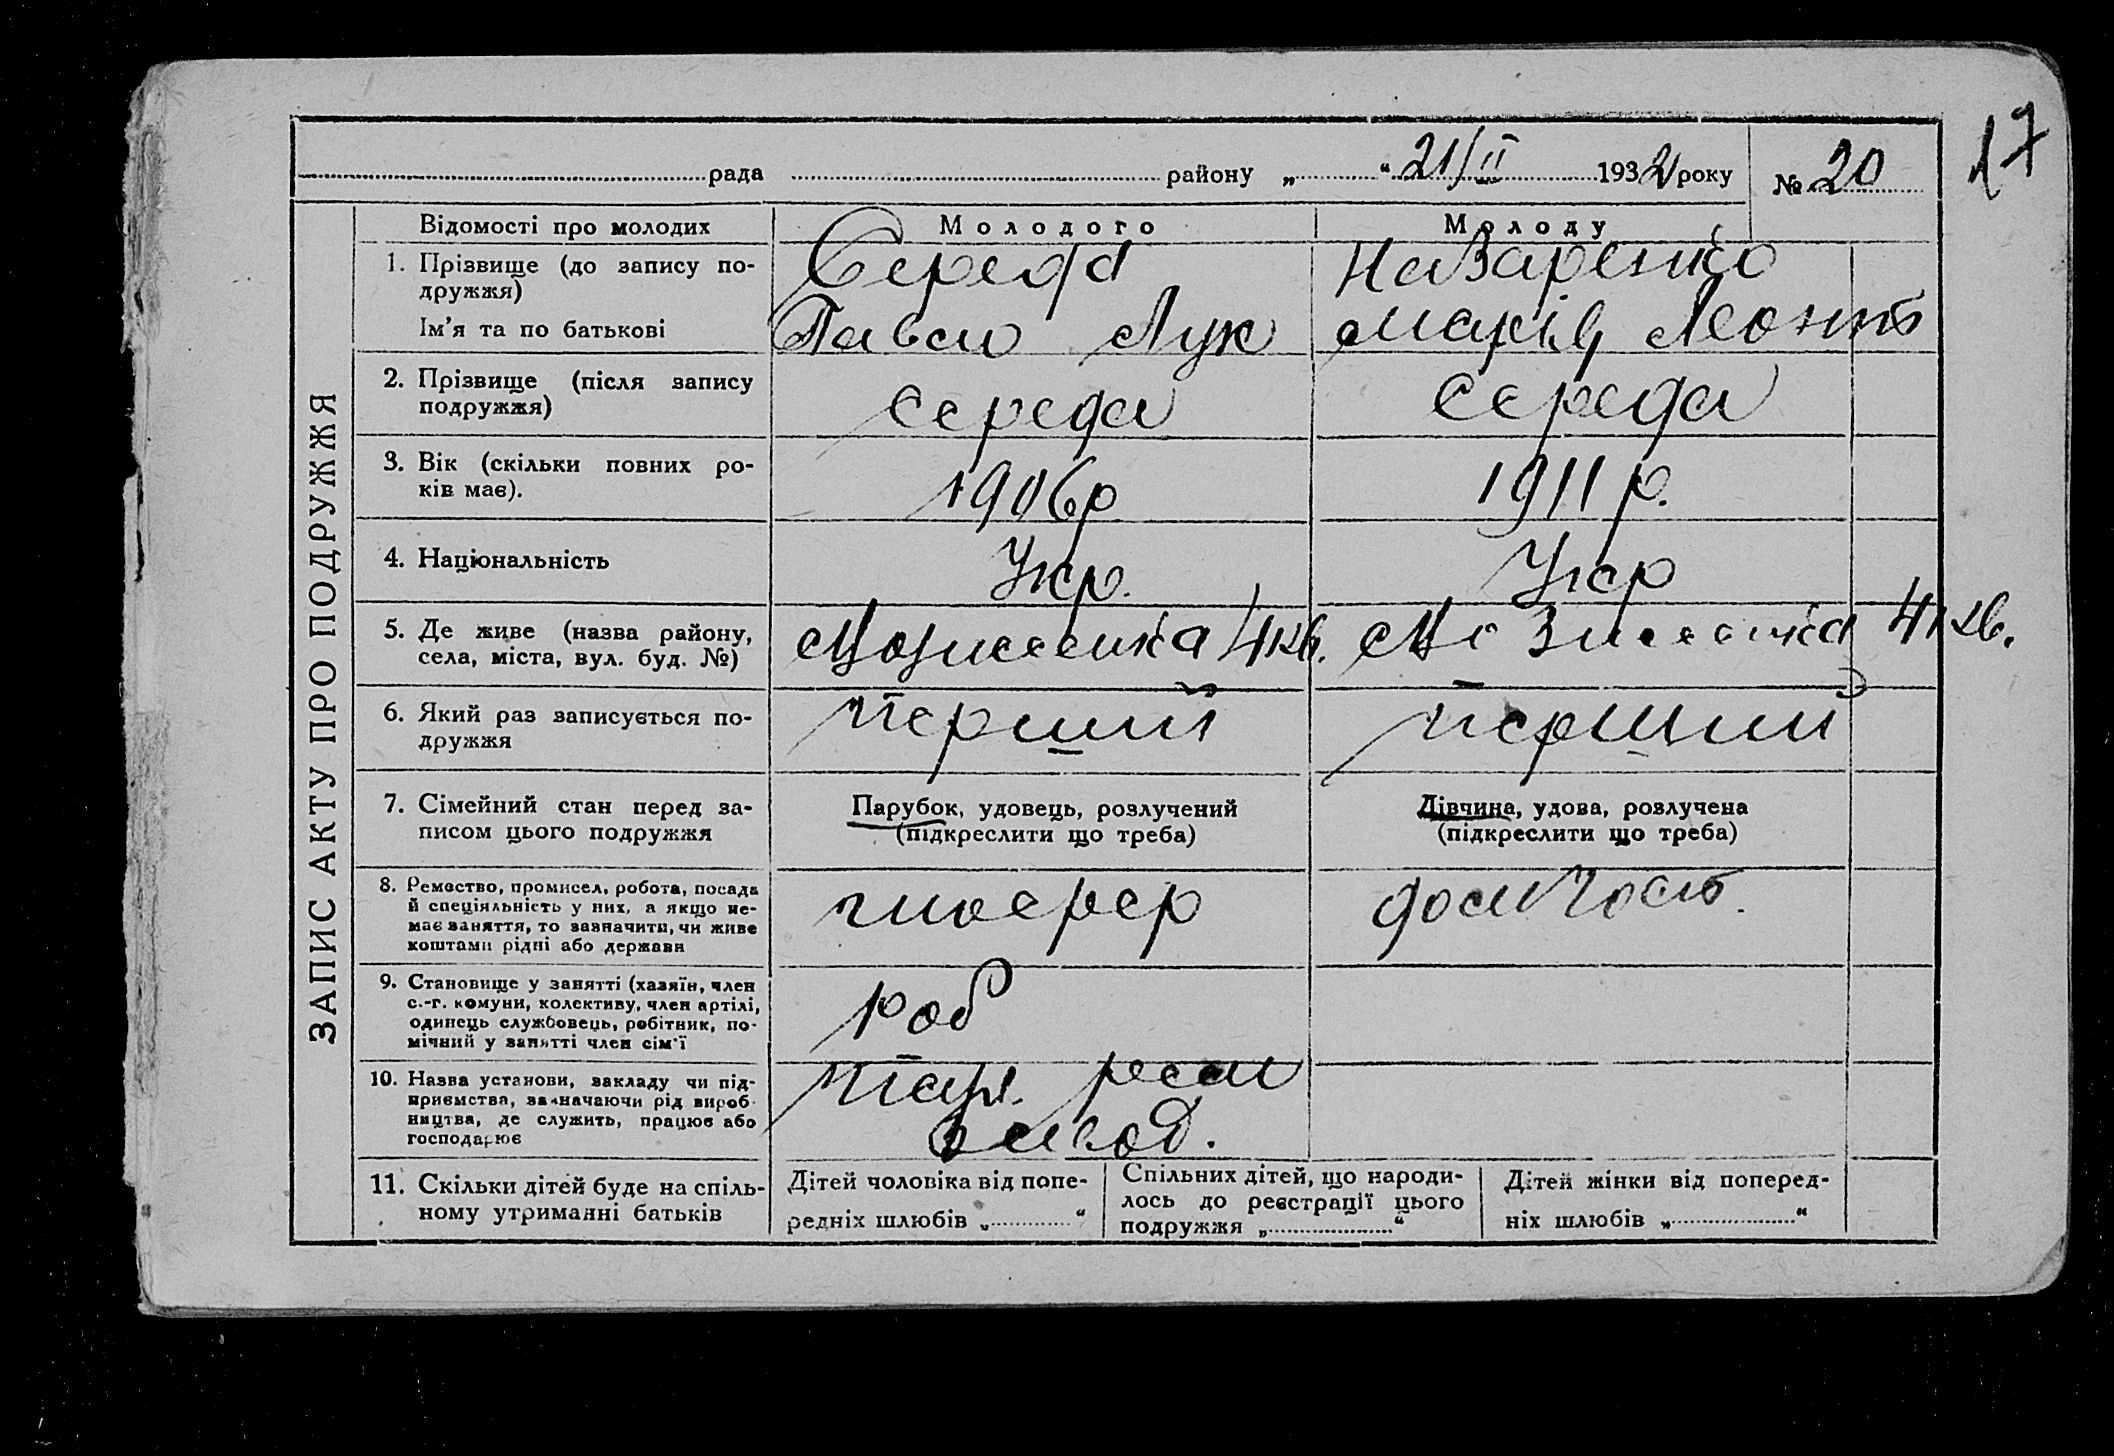 17
рада району „ “ 21/II 1932 року № 20
ЗАПИС АКТУ ПРО ПОДРУЖЖЯ
Відомості про молодих
Молодого
Молоду
1. Прізвище (до запису по-
дружжя)
Ім’я та по батькові
Середа
Павло Лук
Назаренко
Марія Леонт
2. Прізвище (після запису
подружжя)
Середа
Середа
3. Вік (скільки повних ро-
ків має).
1906р
1911 р.
4. Національність
Укр.
Укр
5. Де живе (назва району,
села, міста, вул. буд. №)
4 кв.
4 кв.
6. Який раз записується по-
дружжя
перший
перший
7. Сімейний стан перед за-
писом цього подружжя
Парубок, удовець, розлучений
(підкреслити що треба)
Дівчина, удова, розлучена
(підкреслити що треба)
8. Ремество, промисел, робота, посада
й спеціяльність у них, а якщо не-
має заняття, то зазначити, чи живе
коштами рідні або держави
шофер
дом госп.
9. Становище у занятті (хазяїн, член
с.-г. комуни, колективу, член артілі,
одинець службовець, робітник, по-
мічний у занятті член сім’ї
роб
10. Назва установи, закладу чи під-
приємства, зазначаючи рід вироб-
ництва, де служить, працює або
господарює
11. Скільки дітей буде на спіль-
ному утриманні батьків
Дітей чоловіка від попе-
редніх шлюбів „ “
Спільних дітей, що народи-
лось до реєстрації цього
подружжя „ “
Дітей жінки від поперед-
ніх шлюбів „ “